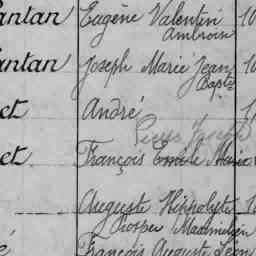 antan Eugène Valentin 10
Ambroise
antan Joseph Marie Jean 10
Bapte
et André 1
Pierre Joseph
et François Emile Marie
Auguste Hippolyte 1
Prosper Maximilien
é François Auguste Léon